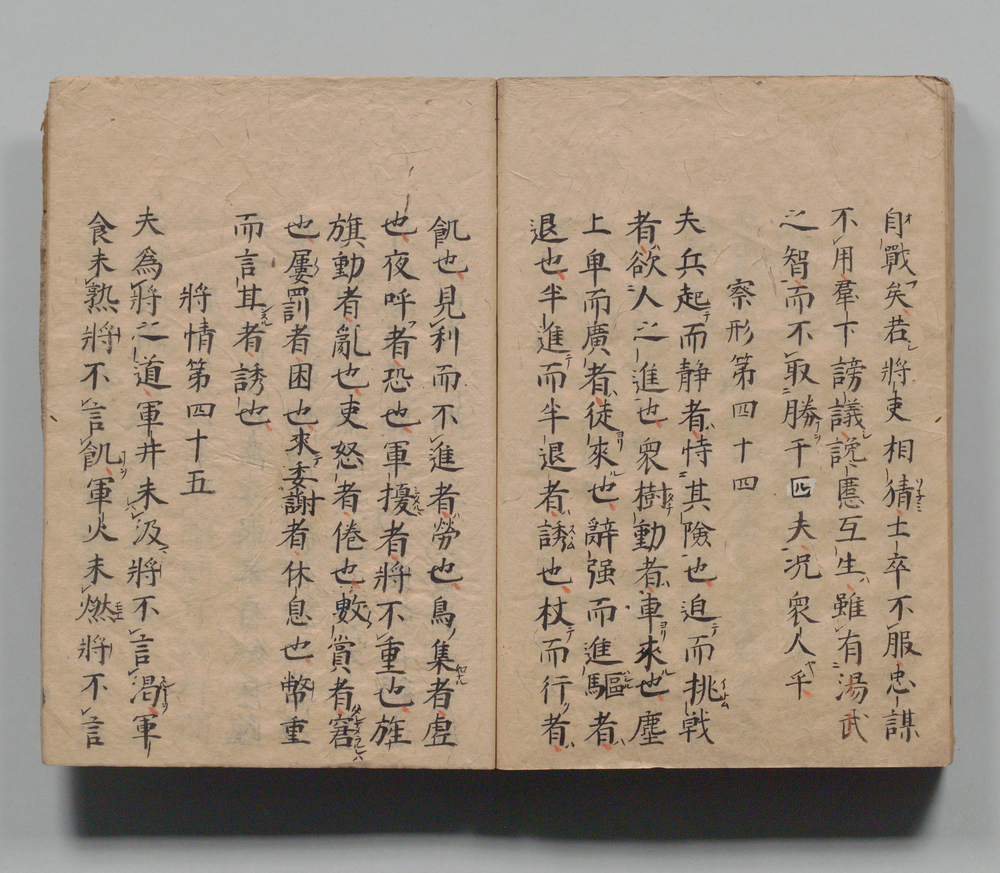 自戰矣若將吏相猜士卒不服忠謀
不用羣下謗議讒慝互生雖有湯武
之智而不取勝于匹夫况衆人乎
察形第四十四
夫兵起而静者恃其險也迫而挑戦
者欲人之進也衆樹動者車來也塵
上卑而廣者徒來也辭强而進驅者
退也半進而半退者誘也杖而行者
飢也見利而不進者勞也鳥集者虚
也夜呼者恐也軍擾者將不重也旌
旗動者亂也吏怒者倦也數賞者窘
也屢罰者困也來委謝者休息也幣重
而言甘者誘也
將情第四十五
夫為將之道軍井未汲將不言渇軍
食未熟將不言飢軍火未燃將不言